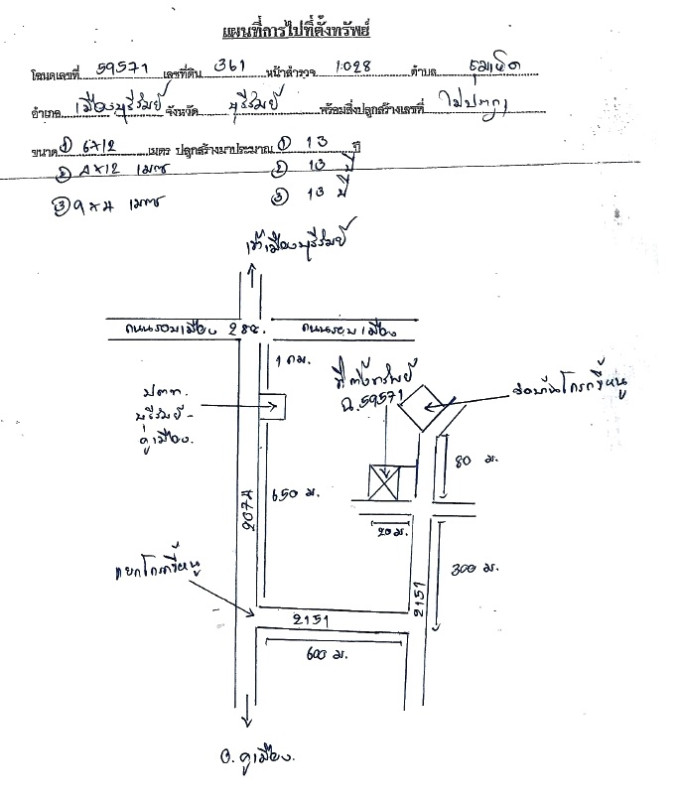 แผนที่การไปที่ตั้งทรัพย์
โฉนดเลขที่ 59571 เลขที่ดิน 361 หน้าสำรวจ 1028 ตำบล
อำเภอ เมืองบุรีรัมย์ จังหวัด บุรีรัมย์ พร้อมสิ่งปลูกสร้างเลขที่ ไม่ปรากฏ
ขนาด ① 6x12 เมตร ปลูกสร้างมาประมาณ ① 13 ปี
② 4x12 เมตร ② 13 ปี
③ 9x4 เมตร ③ 13 ปี
เข้าเมืองบุรีรัมย์
ถนนรอบเมือง 288. ถนนรอบเมือง
1 กม.
ปตท.
บุรีรัมย์-
คูเมือง.
ที่ตั้งทรัพย์
ฉ.59571
โคกขี้หนู
80 ม.
2074
650 ม.
20 ม.
แยกโคกขี้หนู
300 ม.
2151
2151
600 ม.
อ. คูเมือง.